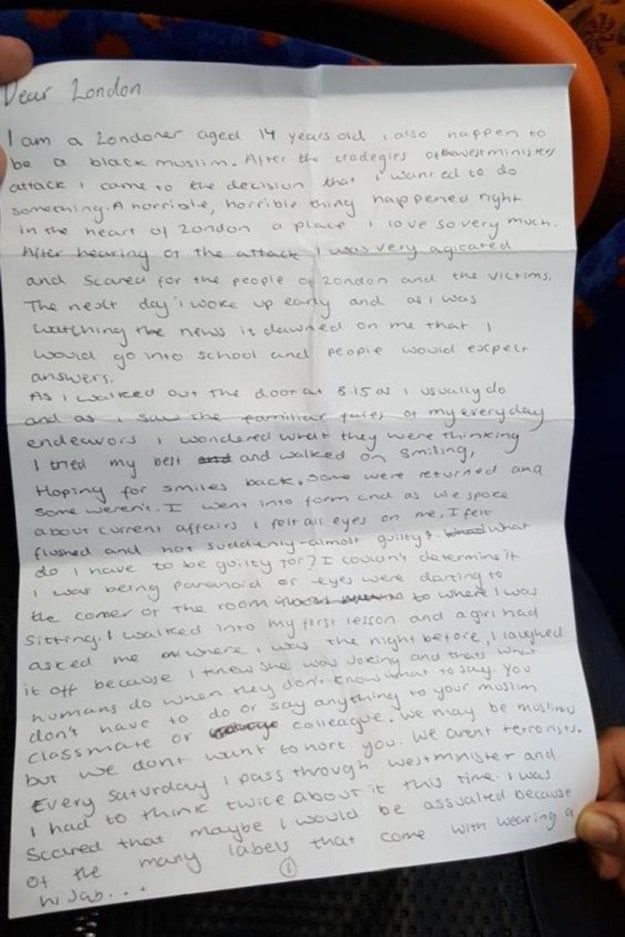 Dear London
I am a Londoner aged 14 years old i also happen to
be a black muslim. After the tradegies of the westministers
attack i came to the decision that i wanted to do
something. A horrible, horrible thing happened right
in the heart of London a place i love so very much.
After hearing of the attack I was very agitated
and scared for the people of London and the victims.
The next day i woke up early and as i was
watching the news it dawned on me that I
would go into school and people would expect
answers.
As I walked out the door at 8.15 as i usually do
and as i saw the familiar faces of my everyday
endeavors i wondered what they were thinking
I tried my best and and walked on smiling,
Hoping for smiles back, some were returned and
some weren't. I went into form and as we spoke
about current affairs I felt all eyes on me, I felt
flushed and hot suddenly - almost guilty? what
do I have to be guilty for? I couldn't determine if
I was being paranoid or eyes were darting to
the corner of the room to where I was
sitting. I walked into my first lesson and a girl had
asked me where I was the night before, I laughed
it off because I knew she was joking and thats what
humans do when they don't know what to say. You
don't have to do or say anything to your muslim
classmate or colleague. We may be muslims
but we dont want to hurt you. We arent terrorists.
Every Saturday I pass through westmnister and
I had to think twice about it this time. I was
scared that maybe I would be assualted because
of the many labels that come with wearing a
hijab...
1